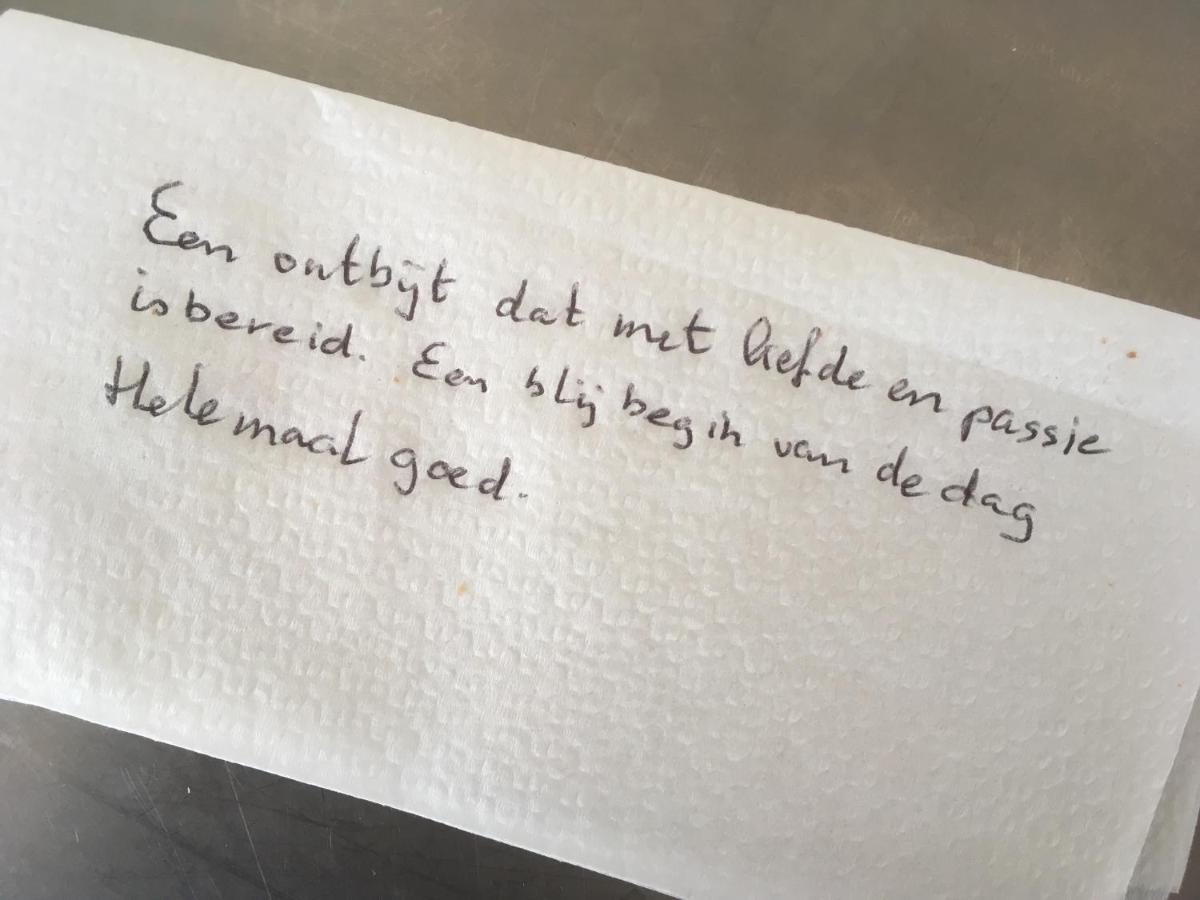 Een ontbijt dat met liefde en passie
is bereid. Een blij begin van de dag
Helemaal goed.